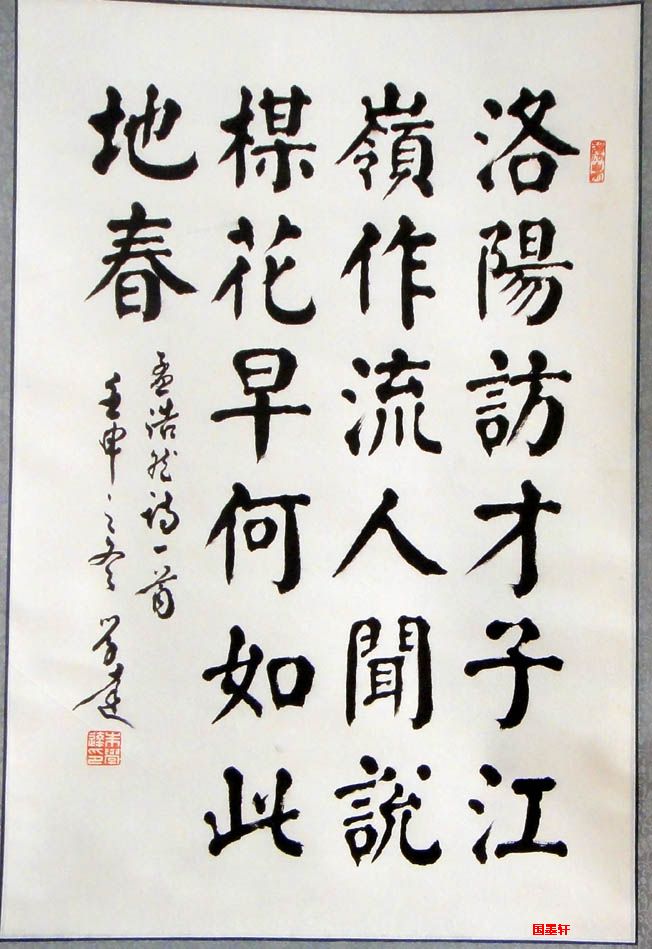 洛陽訪才子江
嶺作流人聞説
楳花早何如此
地春
孟浩然诗一首
壬申之冬 学達
国墨轩